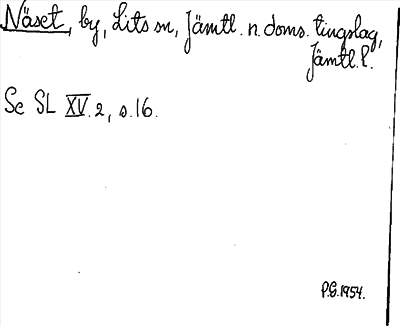 Näset, by, Lits sn, Jämtl. n. doms. tingslag,
Jämtl. l.
Se SL XV.2, s.16.
P.G.1954.